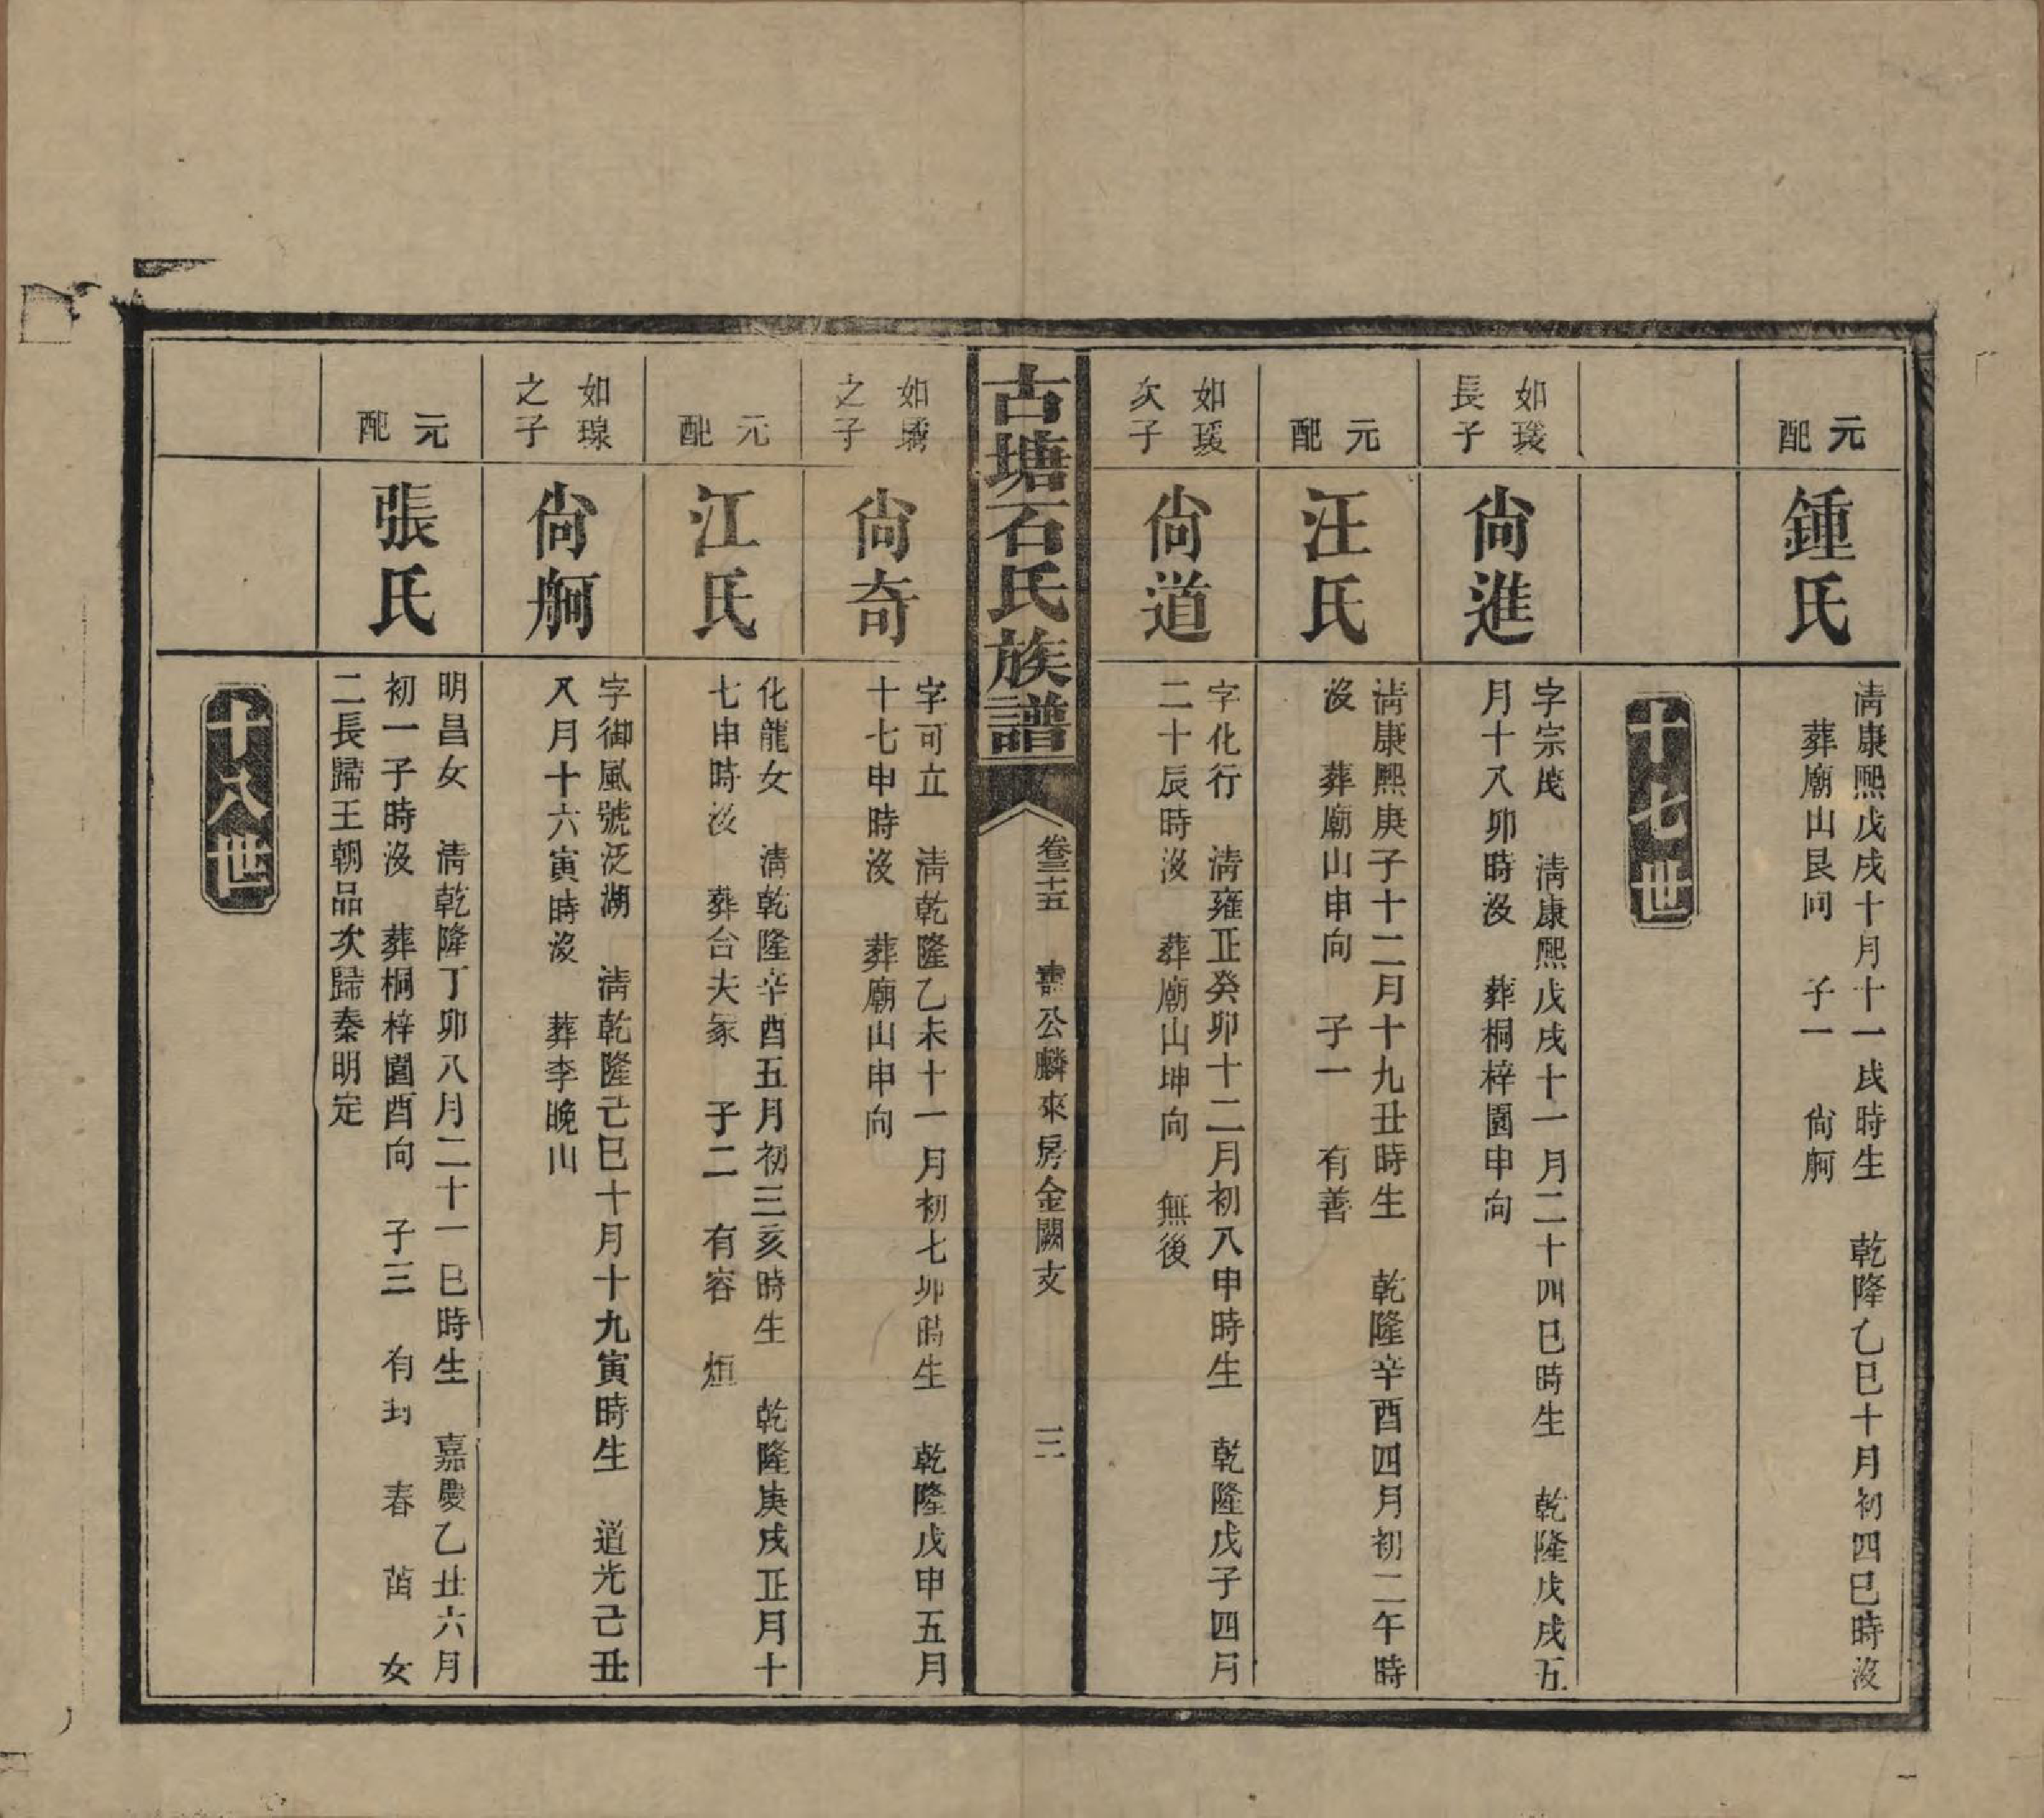 元配
鍾氏
清康熙戊戌十月十一戌時生　乾隆乙巳十月初四巳時沒
葬廟山艮向　子一　尙舸
十七世
如瑗長子
尙進
字宗茂　清康熙戊戌十一月二十四巳時生　乾隆戊戌五
月十八卯時沒　葬桐梓園申向
元配
汪氏
清康熙庚子十二月十九丑時生　乾隆辛酉四月初二午時
沒　葬廟山申向　子一　有善
如瑗次子
尙道
字化行　清雍正癸卯十二月初八申時生　乾隆戊子四月
二十辰時沒　葬廟山坤向　無後
古塘石氏族譜
卷三十五　壽公麟來房金闕支　三
如之子
尙奇
字可立　清乾隆乙未十一月初七卯時生　乾隆戊申五月
十七申時沒　葬廟山申向
元配
江氏
化龍女　清乾隆辛酉五月初三亥時生　乾隆庚戌正月十
七申時沒　葬台夫冢　子二　有容　烜
如瑔之子
尙舸
字御風號泛湖　清乾隆己巳十月十九寅時生　道光己丑
八月十六寅時沒　葬李晚山
元配
張氏
明昌女　清乾隆丁卯八月二十一巳時生　嘉慶乙丑六月
初一子時沒　葬桐梓園酉向　子三　有封　春　苗　女
二長歸王朝品次歸秦明定
十八世